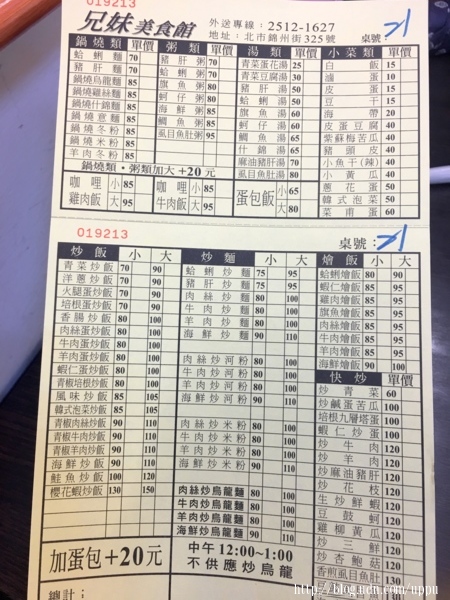 019213
兄妹美食館
外送專線：2512-1627
地址：北市錦州街325號
桌號：21
鍋燒類 單價
蛤蜊麵 70
豬肝麵 70
鍋燒烏龍麵 85
鍋燒雞絲麵 85
鍋燒什錦麵 85
鍋燒意麵 85
鍋燒冬粉 85
鍋燒米粉 85
羊肉冬粉 85
粥類 單價
豬肝粥 70
蛤蜊粥 70
旗魚粥 80
蚵仔粥 80
海鮮粥 95
鯛魚粥 95
虱目魚肚粥 95
鍋燒類‧粥類加大+20元
湯類 單價
青菜蛋花湯 25
青菜豆腐湯 30
豬肝湯 50
蛤蜊湯 50
旗魚湯 60
蚵仔湯 60
鯛魚湯 65
什錦湯 65
麻油豬肝湯 80
虱目魚肚湯 80
小菜類 單價
白飯 15
滷蛋 10
皮蛋 15
豆干 15
海帶 20
皮蛋豆腐 40
紫蘇梅苦瓜 40
豬頭皮 40
小魚干(辣) 40
小黃瓜 40
蔥花蛋 50
韓式泡菜 50
菜甫蛋 60
咖哩雞肉飯 小 85 大 95
咖哩牛肉飯 小 85 大 95
蛋包飯 小 65 大 80
019213
桌號：21
炒飯 小 大
青菜炒飯 70 90
洋蔥炒飯 70 90
火腿蛋炒飯 70 90
培根蛋炒飯 70 90
香腸炒飯 80 100
肉絲蛋炒飯 80 100
牛肉蛋炒飯 80 100
羊肉蛋炒飯 80 100
蝦仁蛋炒飯 80 100
青椒培根炒飯 80 100
風味炒飯 85 105
韓式泡菜炒飯 85 105
青椒肉絲炒飯 90 110
青椒牛肉炒飯 90 110
青椒羊肉炒飯 90 110
海鮮炒飯 90 110
鮭魚炒飯 100 120
櫻花蝦炒飯 130 150
加蛋包+20元
總計：
炒麵 小 大
蛤蜊炒麵 75 95
豬肝炒麵 75 95
肉絲炒麵 80 100
牛肉炒麵 80 100
羊肉炒麵 80 100
海鮮炒麵 90 110
肉絲炒河粉 80 100
牛肉炒河粉 80 100
羊肉炒河粉 80 100
海鮮炒河粉 90 110
肉絲炒米粉 80 100
牛肉炒米粉 80 100
羊肉炒米粉 80 100
海鮮炒米粉 90 110
肉絲炒烏龍麵 80 100
牛肉炒烏龍麵 80 100
羊肉炒烏龍麵 80 100
海鮮炒烏龍麵 90 110
中午12:00~1:00
不供應炒烏龍
燴飯 小 大
蛤蜊燴飯 80 90
蝦仁燴飯 85 95
雞肉燴飯 85 95
旗魚燴飯 85 95
肉絲燴飯 85 95
牛肉燴飯 85 95
羊肉燴飯 85 95
海鮮燴飯 90 100
快炒 單價
炒青菜 60
炒鹹蛋苦瓜 100
培根九層塔蛋 100
蝦仁炒蛋 100
炒牛肉 120
炒羊肉 120
炒麻油豬肝 120
炒花枝 120
生炒鮮蝦 120
豆鼓蚵 120
雞柳黃瓜 120
炒三鮮 120
炒杏鮑菇 120
香煎虱目魚肚 130
http://blog.udn.com/uppu